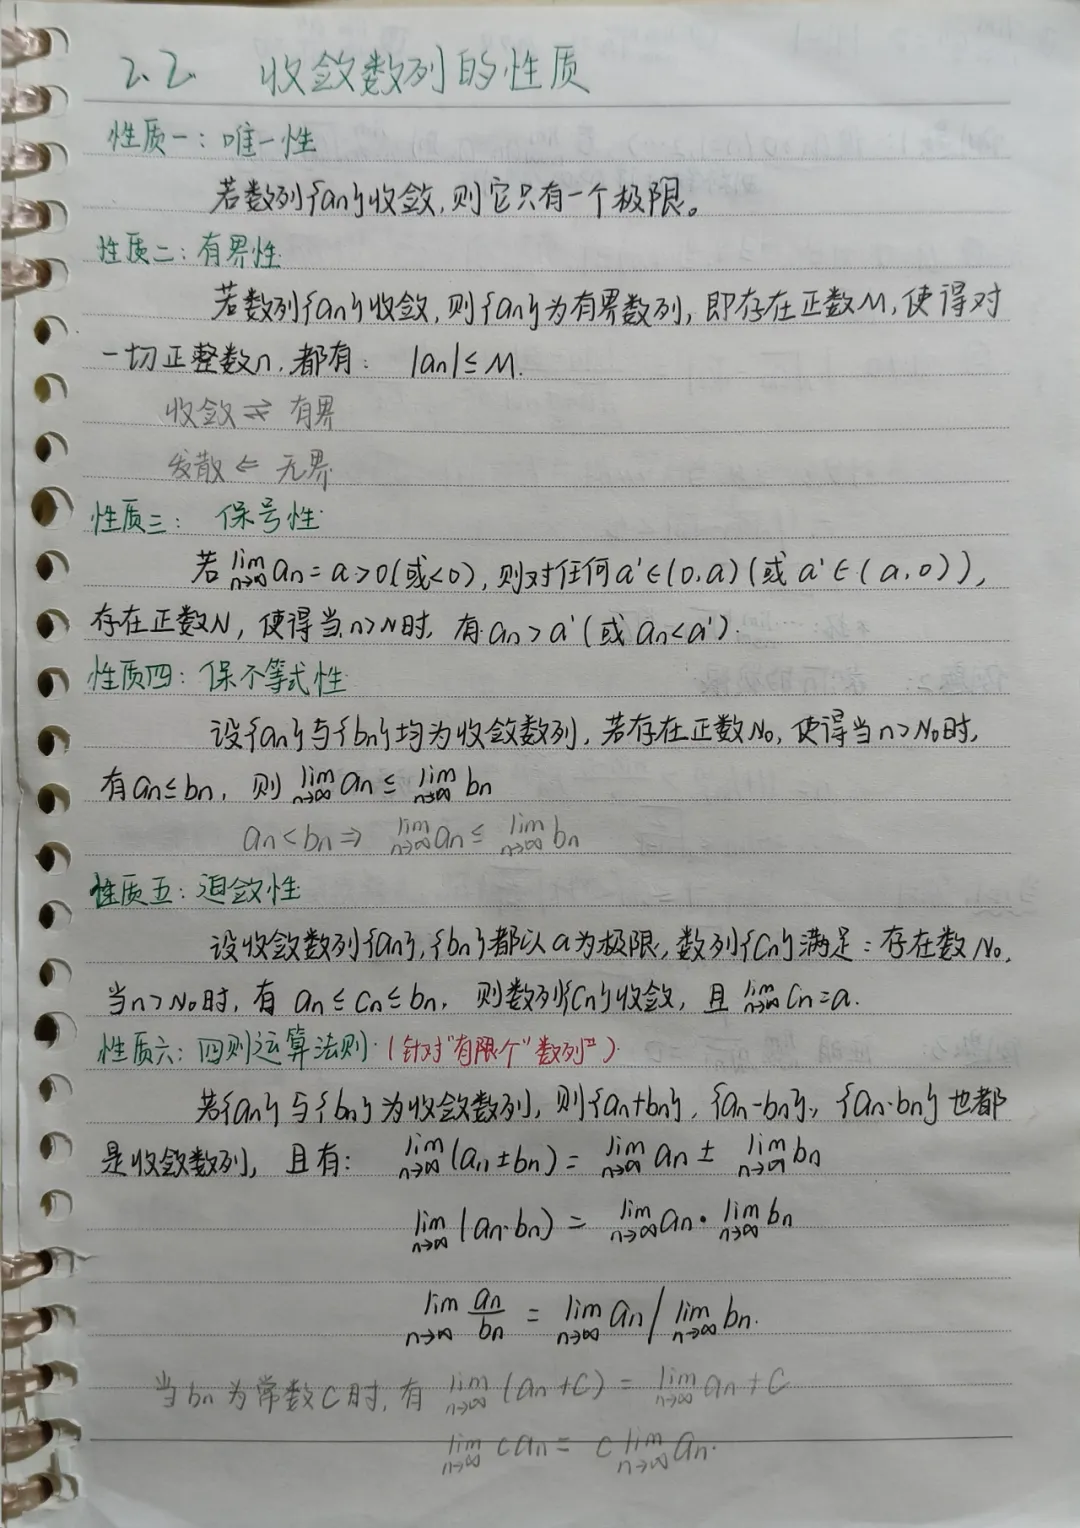 2.2 收敛数列的性质
性质一：唯一性
若数列{an}收敛,则它只有一个极限。
性质二：有界性
若数列{an}收敛,则{an}为有界数列,即存在正数M,使得对
一切正整数n,都有： |an|≤M.
收敛⇏有界
发散⇐无界
性质三： 保号性
若 lim n→∞ an=a>0(或<0),则对任何a'∈(0,a)(或a'∈(a,0)),
存在正数N,使得当n>N时,有an>a'(或an<a').
性质四：保不等式性
设{an}与{bn}均为收敛数列,若存在正数N₀,使得当n>N₀时,
有an≤bn, 则 lim n→∞ an ≤ lim n→∞ bn
an<bn ⇒ lim n→∞ an ≤ lim n→∞ bn
性质五：迫敛性
设收敛数列{an},{bn}都以a为极限,数列{Cn}满足：存在数N₀,
当n>N₀时,有 an≤Cn≤bn, 则数列{Cn}收敛,且 lim n→∞ Cn=a.
性质六：四则运算法则.(针对"有限个"数列)
若{an}与{bn}为收敛数列,则{an+bn},{an-bn},{an·bn}也都
是收敛数列, 且有： lim n→∞ (an±bn) = lim n→∞ an ± lim n→∞ bn
lim n→∞ (an·bn) = lim n→∞ an · lim n→∞ bn
lim n→∞ an/bn = lim n→∞ an / lim n→∞ bn.
当bn为常数C时,有 lim n→∞ (an+C) = lim n→∞ an+C
lim n→∞ can = c lim n→∞ an.